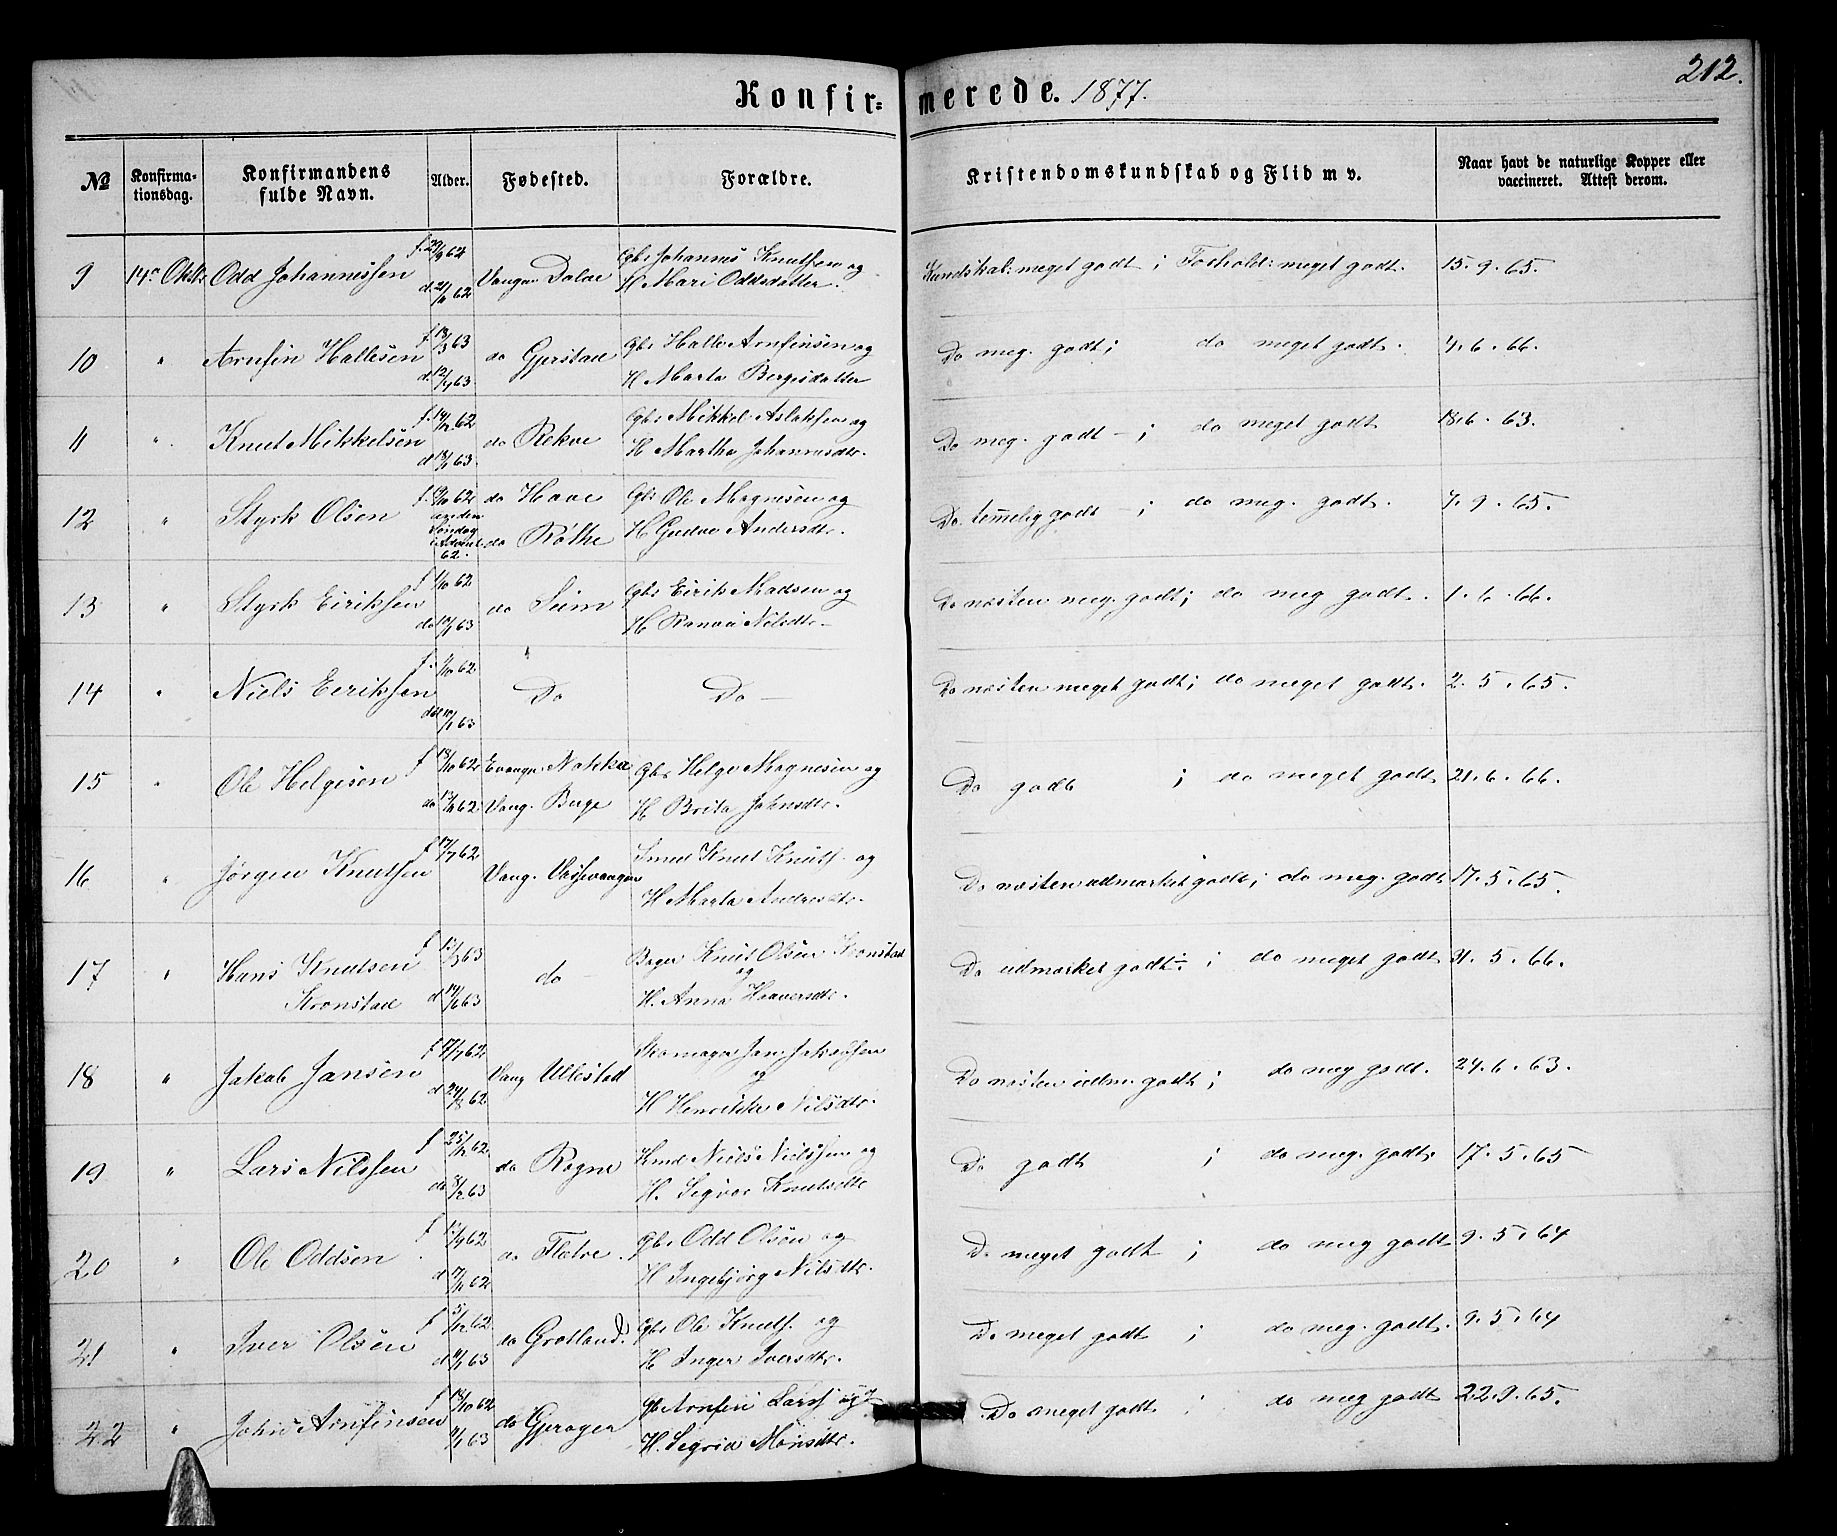 212.
Konfir= merede. 1877.
№ Konfirma-tionsdag. Konfirmandens fulde Navn. Alder. Fødested. Forældre. Kristendomskundskab og Flid m v. Naar havt de naturlige Kopper eller vaccineret. Attest derom.
9 14. Oktr Odd Johannessen f. 29/9 62 Vangen Dolve Gbr Johannes Knutsen og Kundskab: meget godt ; Forhold: meget godt. 15. 9. 65.
H Mari Oddsdatter.
10 " Arnfin Hallesen f 13/3 63 do Gjerstad Gbr Halle Arnfinsen og Do meg. godt ; do meget godt. 4. 6. 66.
d 12/4 63. H Marta Bergesdatter
11 " Knut Mikkelsen f. 14/12 62 do Rekve Gbr Mikkel Aslaksen og Do meg. godt - ; do meget godt 18. 6. 63.
d 18/1 63. H Martha Johannesdtr.
12 " Styrk Olsen f. 9/10 62 do Hove Gbr Ole Magnesen og Do temmelig godt - ; do meg. godt. 4. 9. 65.
anden Søndag i Advent 62. do Røthe H Gudve Andersdtr.
13 " Styrk Eiriksen f 1/10 62 do Seim Gbr Eirik Madsen og Do næsten meg. godt ; do meg godt. 1. 6. 66.
do 10/1 63 H Ranvei Nilsdtr -
14 " Niels Eiriksen f. 1/10 62 Do Do - Do næsten meget godt ; do meget godt. 2. 5. 65.
do 10/1 63
15 " Ole Helgesen f 18/10 62 Evanger Nakka Gbr Helge Magnesen og Do godt ; do meget godt 21. 6. 66.
do 13/11 62 Vang. Berge H Brita Johnsdtr.
16 " Jørgen Knutsen f 17/7 62 Vang. Vossevangen Smed Knut Knuts. og Do næsten udmærket godt ; do meg. godt 17. 5. 65.
H Marta Andersdtr.
17 " Hans Knutsen Kronstad f 13/3 63 do - Bager Knut Olsen Kronstad og Do udmærket godt ÷ ; do meget godt 31. 5. 66.
d 14/6 63 H. Anna Haaversdtr.
18 " Jakob Jansen f 17/7 62 Vang Ullestad Skomager Jan Jakobsen og Do næsten udm. godt ; do meg godt. 24. 6. 63.
d 24/8 62 H Henrikke Nilsdtr.
19 " Lars Nilssen f 25/12 62 do Rogne Hmd Niels Nielssen og Do godt ; do meg. godt. 17. 5. 65
do 8/2 63 H. Sigvor Knutsdtr
20 " Ole Oddsen f 12/9 62 do Fletre. Gbr Odd Olsen og Do meget godt ; do meg godt 9. 5. 64
d 17/11 62 H Ingebjørg Nilsdtr.
21 " Iver Olsen f 5/12 62 do Grotland. Gbr Ole Knuts. og Do meget godt ; do meg. godt. 9. 5. 64
d 11/1 63 H Inger Iversdtr.
22 " John Arnfinsen f 18/10 62 do Gjerager Gbr Arnfin Lars. og Do meget godt ; do meg godt 22. 9. 65.
11/1 63 H. Sigrid Monsdtr.